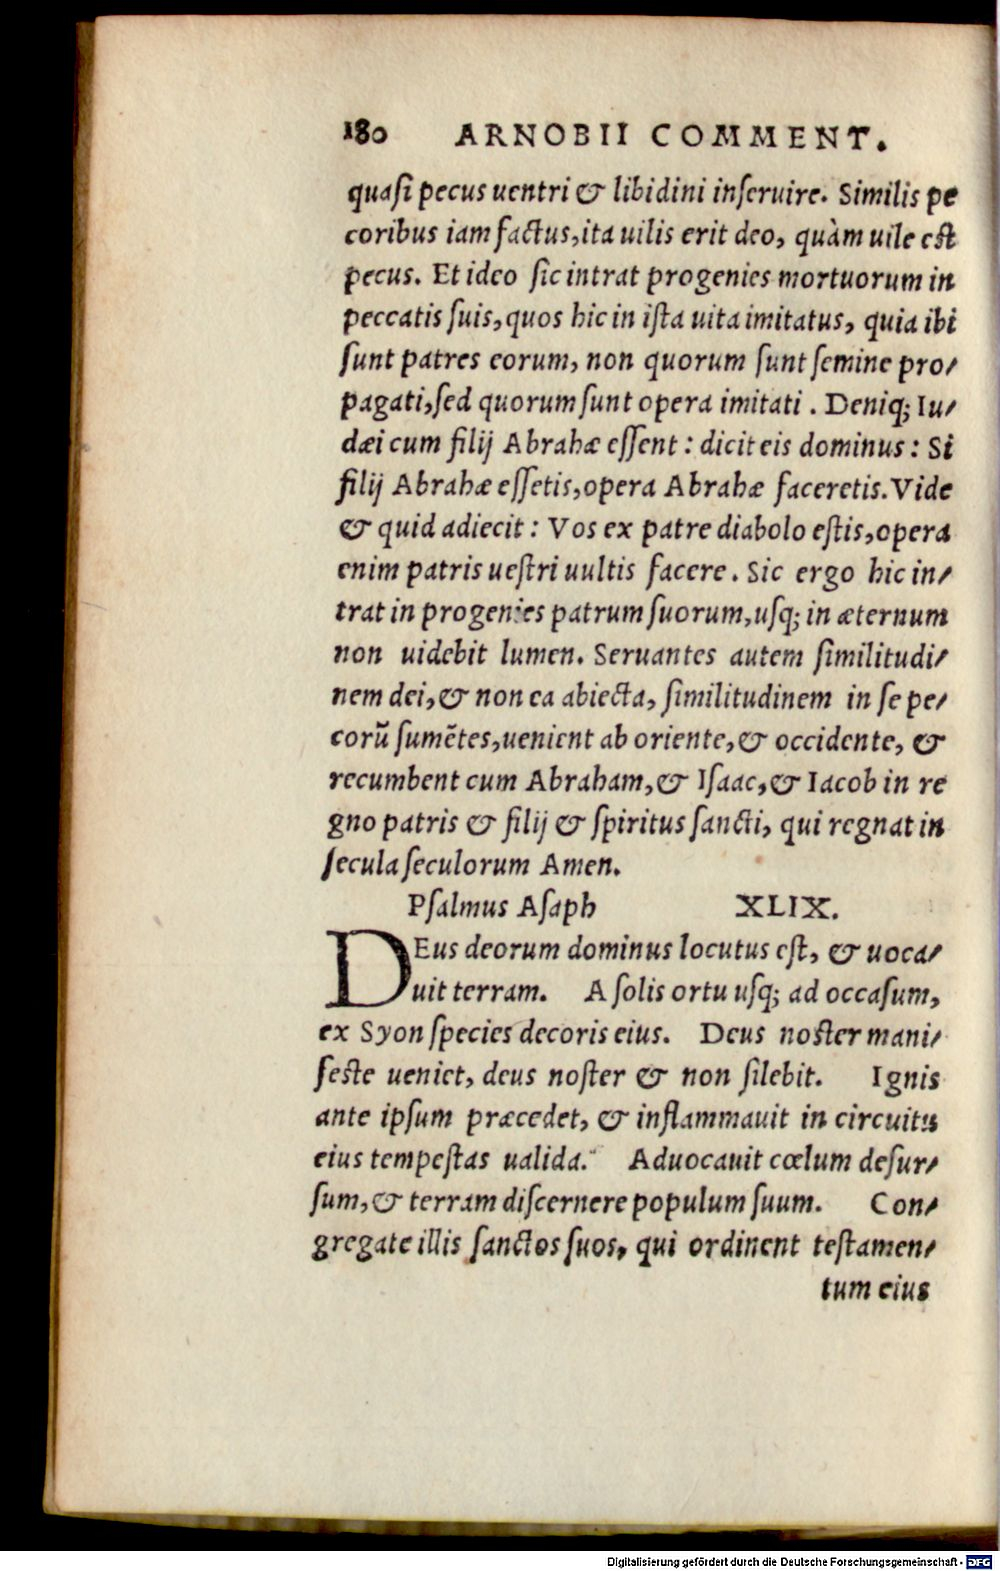 180 ARNOBII COMMENT.
quaſi pecus uentri & libidini inſeruire. Similis pe
coribus iam factus, ita uilis erit deo, quàm uile est
pecus. Et ideo ſic intrat progenies mortuorum in
peccatis ſuis, quos hic in iſta uita imitatus, quia ibi
ſunt patres eorum, non quorum ſunt ſemine pro/
pagati, ſed quorum ſunt opera imitati. Deniq; Iu/
dæi cum filij Abrahæ eſſent: dicit eis dominus: Si
filij Abrahæ eſſetis, opera Abrahæ faceretis. Vide
& quid adiecit: Vos ex patre diabolo eſtis, opera
enim patris ueſtri uultis facere. Sic ergo hic in/
trat in progenies patrum ſuorum, uſq; in æternum
non uidebit lumen. Seruantes autem ſimilitudi/
nem dei, & non ea abiecta, ſimilitudinem in ſe pe/
corũ ſumẽtes, uenient ab oriente, & occidente, &
recumbent cum Abraham, & Iſaac, & Iacob in re
gno patris & filij & ſpiritus ſancti, qui regnat in
ſecula ſeculorum Amen.
Pſalmus Aſaph XLIX.
DEus deorum dominus locutus eſt, & uoca/
uit terram. A ſolis ortu uſq; ad occaſum,
ex Syon ſpecies decoris eius. Deus noster mani/
feste ueniet, deus noſter & non ſilebit. Ignis
ante ipſum præcedet, & inflammauit in circuitu
eius tempeſtas ualida. Aduocauit cœlum deſur/
ſum, & terram diſcernere populum ſuum. Con/
gregate illis ſanctos ſuos, qui ordinent teſtamen/
tum eius
Digitalisierung gefördert durch die Deutsche Forschungsgemeinschaft - DFG